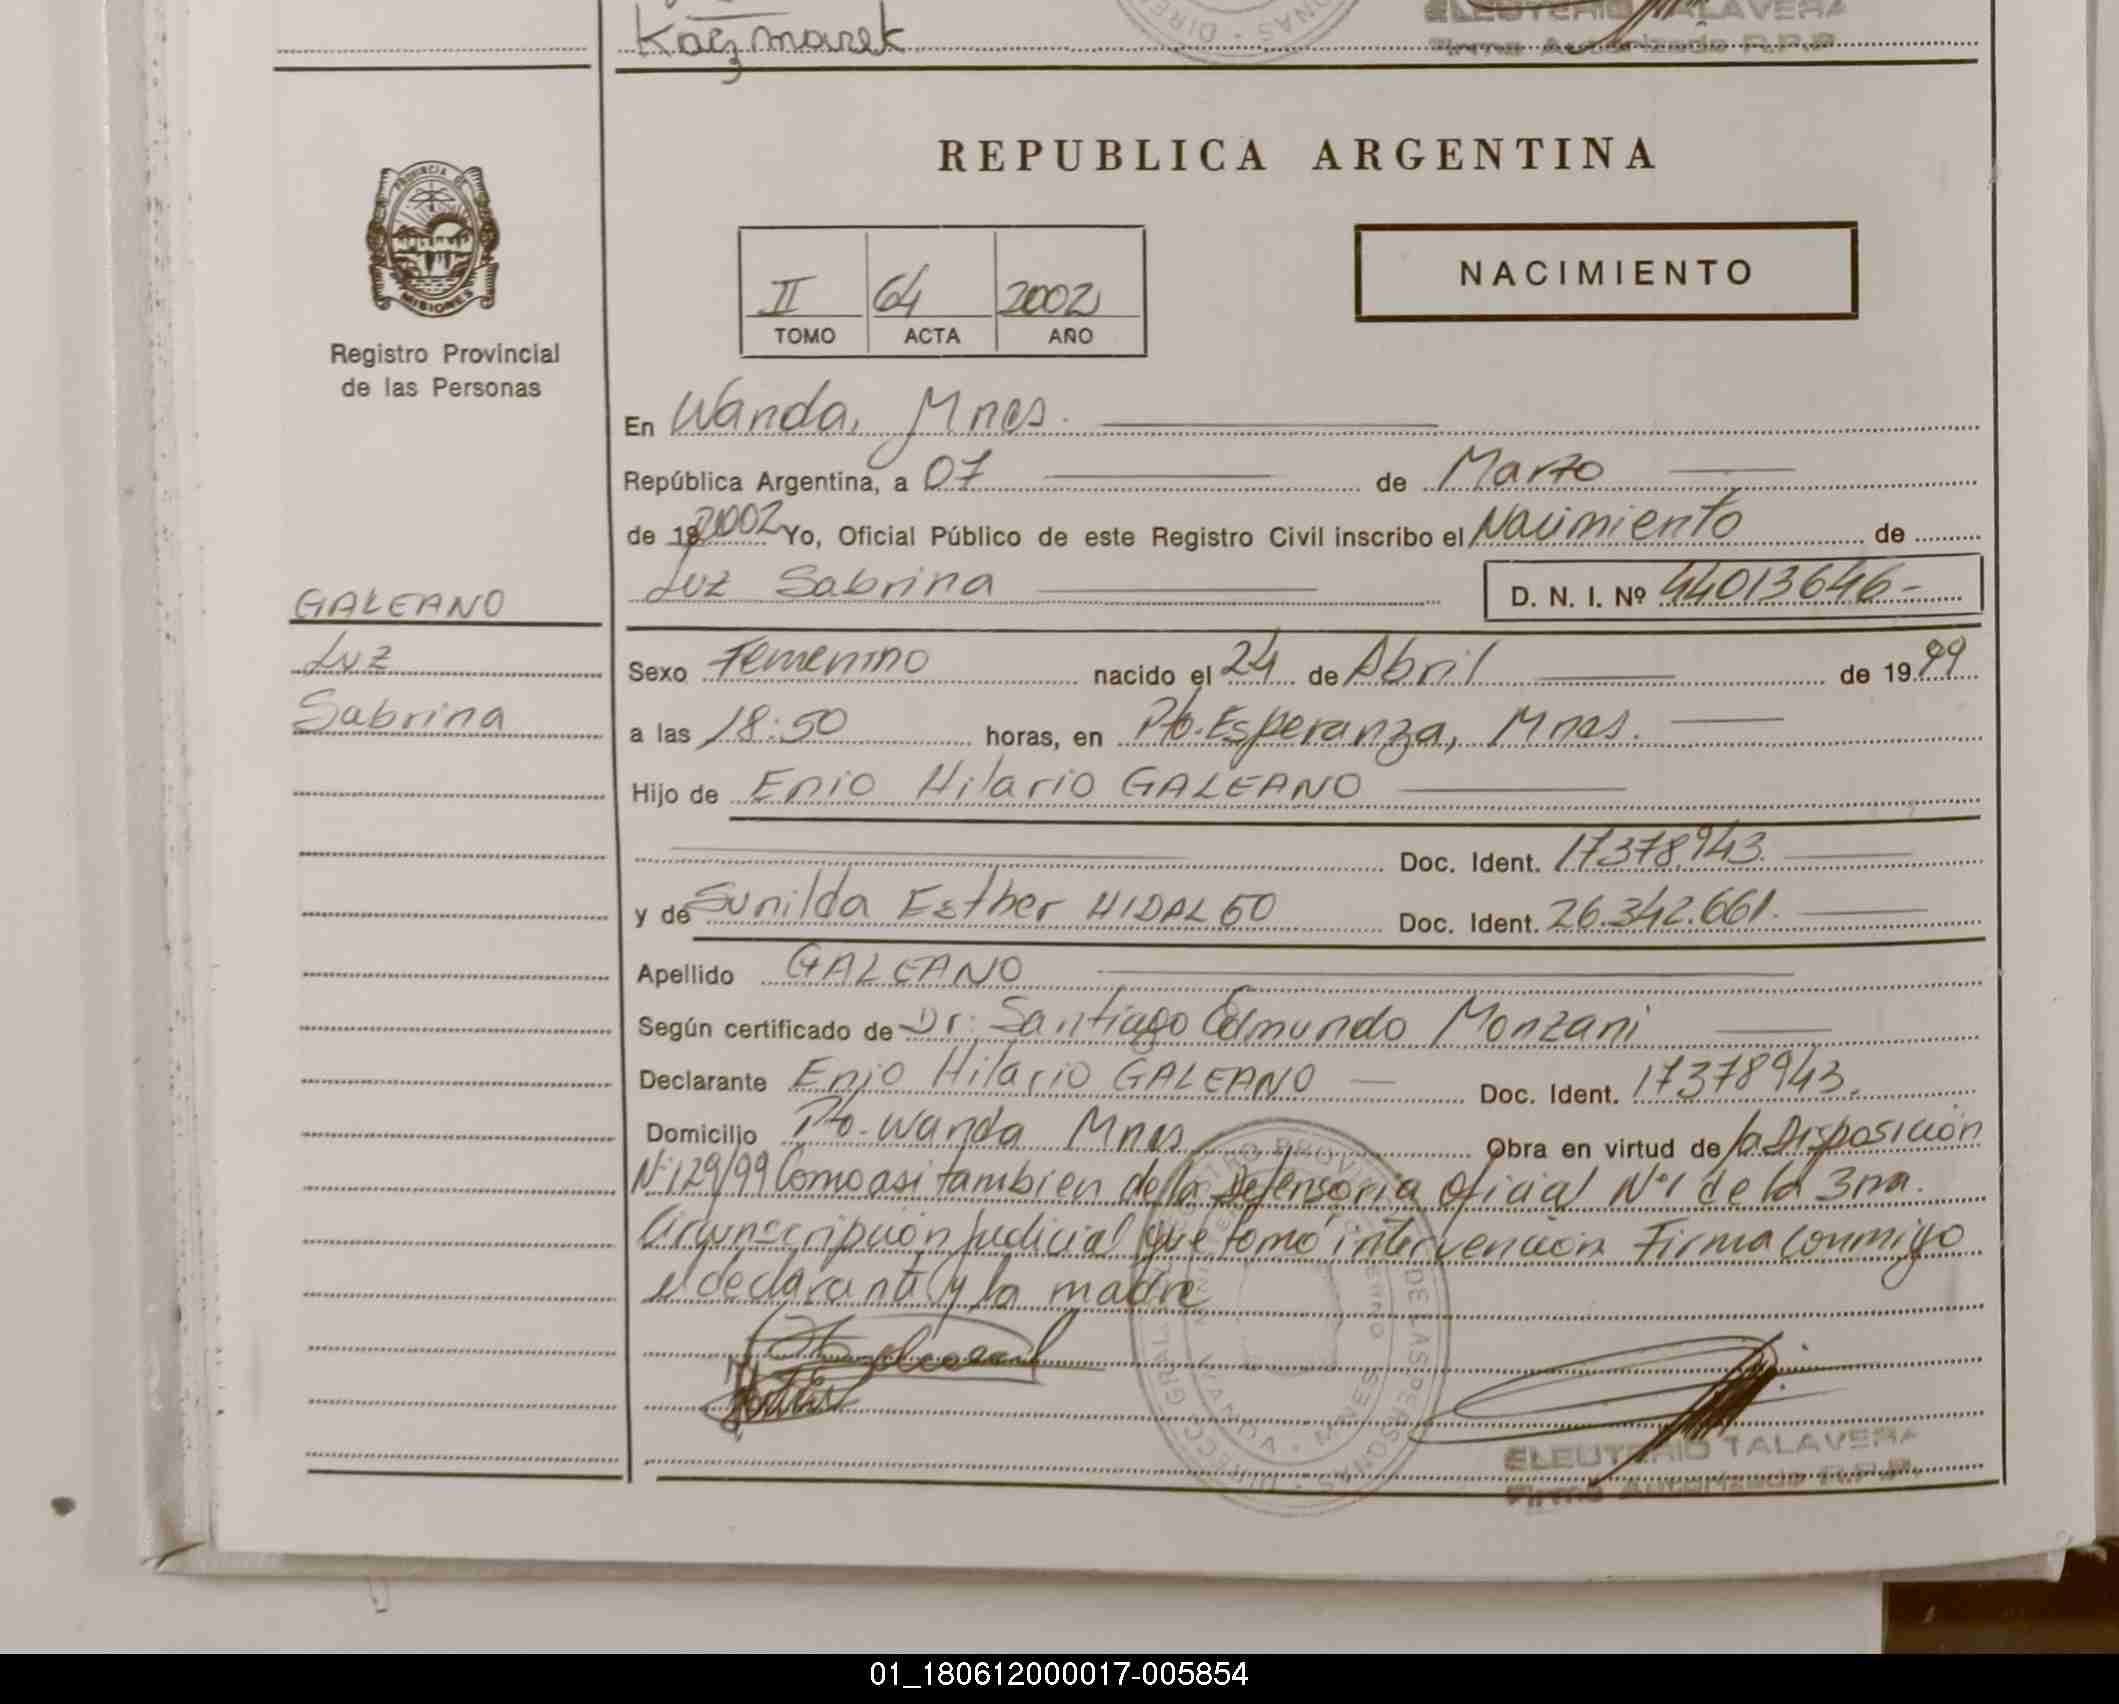 Kaczmarek
ELEUTERIO TALAVERA
Firma Autorizada R.P.P.
REPUBLICA ARGENTINA
PROVINCIA DE MISIONES
Registro Provincial
de las Personas
II 64 2002
TOMO ACTA AÑO
NACIMIENTO
En Wanda, Mnes.
República Argentina, a 07 de Marzo
de 19 2002 Yo, Oficial Público de este Registro Civil inscribo el Nacimiento de
Luz Sabrina D. N. I. Nº 44013646-
GALEANO
Luz
Sabrina
Sexo Femenino nacido el 24 de Abril de 1999
a las 18:50 horas, en Pto. Esperanza, Mnes.
Hijo de Enio Hilario GALEANO
Doc. Ident. 17378.943.
y de Sunilda Esther HIDALGO Doc. Ident. 26.342.661.
Apellido GALEANO
Según certificado de Dr. Santiago Edmundo Monzani
Declarante Enio Hilario GALEANO Doc. Ident. 17378943.
Domicilio Pto. Wanda Mnes Obra en virtud de la Disposición
Nº 129/99 Como asi tambien de la Defensoria Oficial Nº 1 de la 3ra.
Circunscripción Judicial que tomó intervención Firma conmigo
el declarante y la madre
ELEUTERIO TALAVERA
Firma Autorizada R.P.P.
01_180612000017-005854